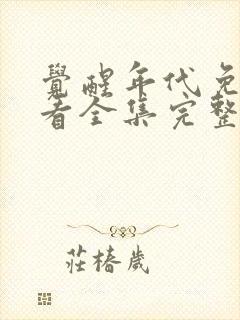 覺醒年代免
看全集完整
莊椿歲